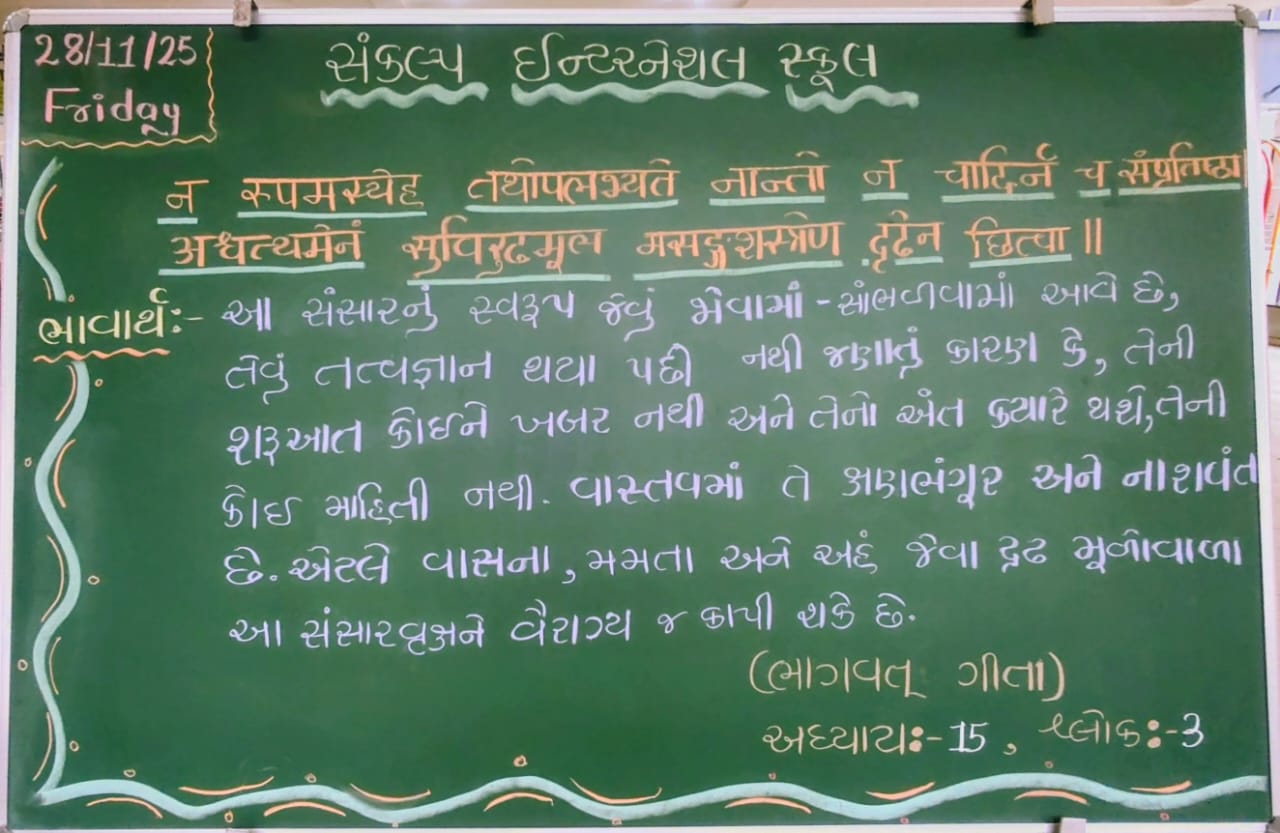 28/11/25
Friday
સંકલ્પ ઈન્ટરનેશલ સ્કૂલ
न रुपमस्येह तथोपलभ्यते नान्तो न चादिर्न च संप्रतिष्ठा
अश्वत्थमेनं सुविरुढमूल मसङ्गशस्त्रेण दृढेन छित्वा ॥
ભાવાર્થઃ- આ સંસારનું સ્વરૂપ જેવું જોવામાં - સાંભળવામાં આવે છે,
તેવું તત્વજ્ઞાન થયા પછી નથી જણાતું કારણ કે, તેની
શરૂઆત કોઈને ખબર નથી અને તેનો અંત ક્યારે થશે, તેની
કોઈ માહિતી નથી. વાસ્તવમાં તે ક્ષણભંગૂર અને નાશવંત
છે. એટલે વાસના, મમતા અને અહં જેવા દ્રઢ મૂળોવાળા
આ સંસારવૃક્ષને વૈરાગ્ય જ કાપી શકે છે.
(ભાગવત્ ગીતા)
અધ્યાયઃ- 15, શ્લોકઃ-3